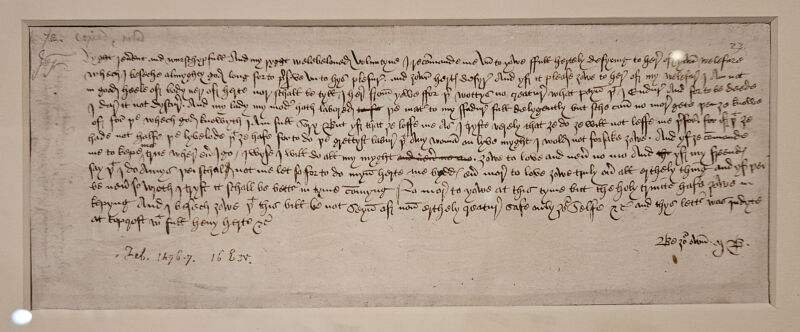 72.
23
Ryght reuerent and wurschypfull and my ryght welebeloued Voluntyne I recomande me vn to yowe full hertely desyring to here of yowr welefare
whech I beseche almyghty god long for to preserve vn to hys plesure and yowr hertys desyre And yf it please yowe to here of my welefare I am not
in good heele of body ner of herte nor schall be tyll I here from yowe for þer wottys no creature what peyn þat I endure And for to be deede
I dare it not dyscure And my lady my moder hath labored þe mater to my fadure full delygently but sche can no more gete þen ȝe knowe
of for þe whech god knowyth I am full sory But yf that ȝe loffe me as I tryste verely that ȝe do ȝe will not leffe me þerfor for if þat ȝe
hade not halfe þe lyvelode þat ȝe hafe for to do þe grettyst labure þat any woman on lyve myght I wold not forsake ȝowe And yf ȝe commande
me to kepe me true where euer I go I wyse I will do all my myght ȝowe to love and neuer no mo And yf my freendys
say þat I do amys þei schal not me let so for to do myn herte me byddys euer more to love ȝowe truly ouer all erthely thing and yf þei
be neuer so wroth I tryst it schall be bettur in tyme commyng No more to yowe at this tyme but the holy trinite hafe ȝowe in
kepyng And I besech ȝowe þat this bill be not seyn of non erthely creature safe only ȝour selfe &c And thys lettur was indyte
at topcroft wt full heuy herte &c
Be ȝour own M B.
Feb. 1476.7. 16 E. IV.